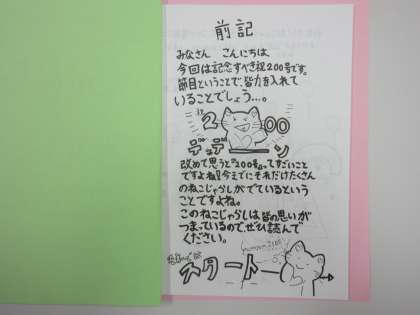 前記
みなさん こんにちは
今回は記念すべき祝200号です。
節目ということで、皆力を入れて
いることでしょう…。
200
デデーン
改めて思うと"200号"ってすごいこと
ですよね!今までにそれだけたくさん
のねこじゃらしがでているという
ことですよね。
このねこじゃらしは皆の思いが
つまっているので、ぜひ読んで
ください。
スタート